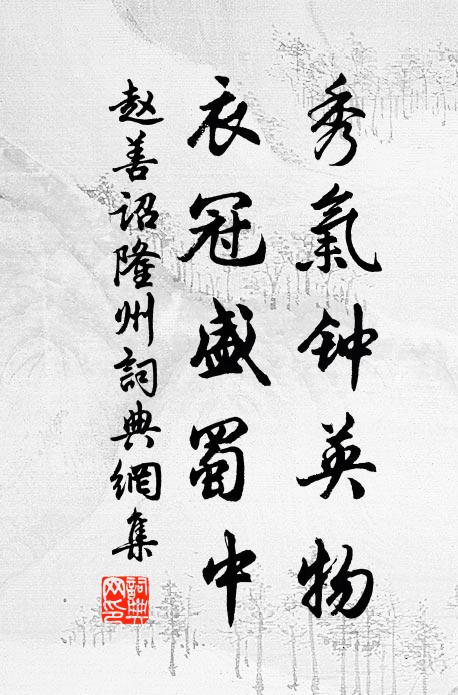 秀氣钟英物
衣冠盛蜀中
赵善诏隆州詞典網集
詞典网印